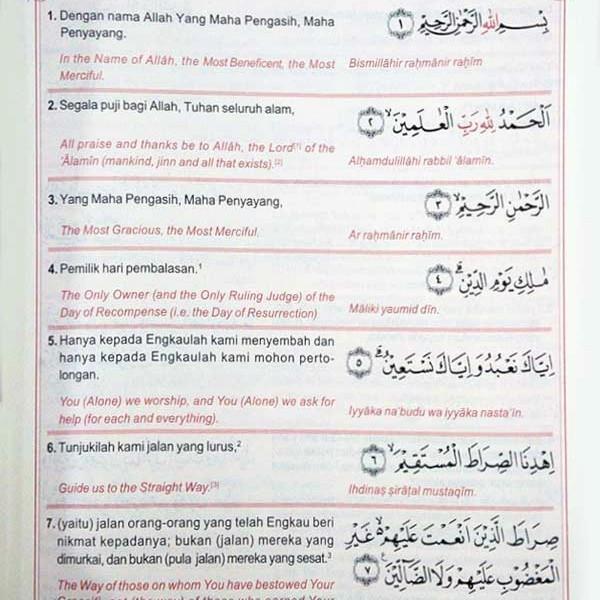 1. Dengan nama Allah Yang Maha Pengasih, Maha
Penyayang.
بِسْمِ اللّٰهِ الرَّحْمٰنِ الرَّحِيْمِ ١
In the Name of Allâh, the Most Beneficent, the Most
Merciful.
Bismillāhir raḥmānir raḥīm
2. Segala puji bagi Allah, Tuhan seluruh alam,
اَلْحَمْدُ لِلّٰهِ رَبِّ الْعٰلَمِيْنَۙ ٢
All praise and thanks be to Allâh, the Lord[1] of the
'Âlamîn (mankind, jinn and all that exists).[2]
Alḥamdulillāhi rabbil ‘ālamīn.
3. Yang Maha Pengasih, Maha Penyayang,
الرَّحْمٰنِ الرَّحِيْمِۙ ٣
The Most Gracious, the Most Merciful.
Ar raḥmānir raḥīm.
4. Pemilik hari pembalasan.¹
مٰلِكِ يَوْمِ الدِّيْنِۗ ٤
The Only Owner (and the Only Ruling Judge) of the
Day of Recompense (i.e. the Day of Resurrection)
Māliki yaumid dīn.
5. Hanya kepada Engkaulah kami menyembah dan
hanya kepada Engkaulah kami mohon perto-
longan.
اِيَّاكَ نَعْبُدُ وَاِيَّاكَ نَسْتَعِيْنُۗ ٥
You (Alone) we worship, and You (Alone) we ask for
help (for each and everything).
Iyyāka na‘budu wa iyyāka nasta‘īn.
6. Tunjukilah kami jalan yang lurus,²
اِهْدِنَا الصِّرَاطَ الْمُسْتَقِيْمَۙ ٦
Guide us to the Straight Way.[3]
Ihdinaṣ ṣirāṭal mustaqīm.
7. (yaitu) jalan orang-orang yang telah Engkau beri
nikmat kepadanya; bukan (jalan) mereka yang
dimurkai, dan bukan (pula jalan) mereka yang sesat.³
صِرَاطَ الَّذِيْنَ اَنْعَمْتَ عَلَيْهِمْ ەۙ غَيْرِ
الْمَغْضُوْبِ عَلَيْهِمْ وَلَا الضَّاۤلِّيْنَ ٧
The Way of those on whom You have bestowed Your